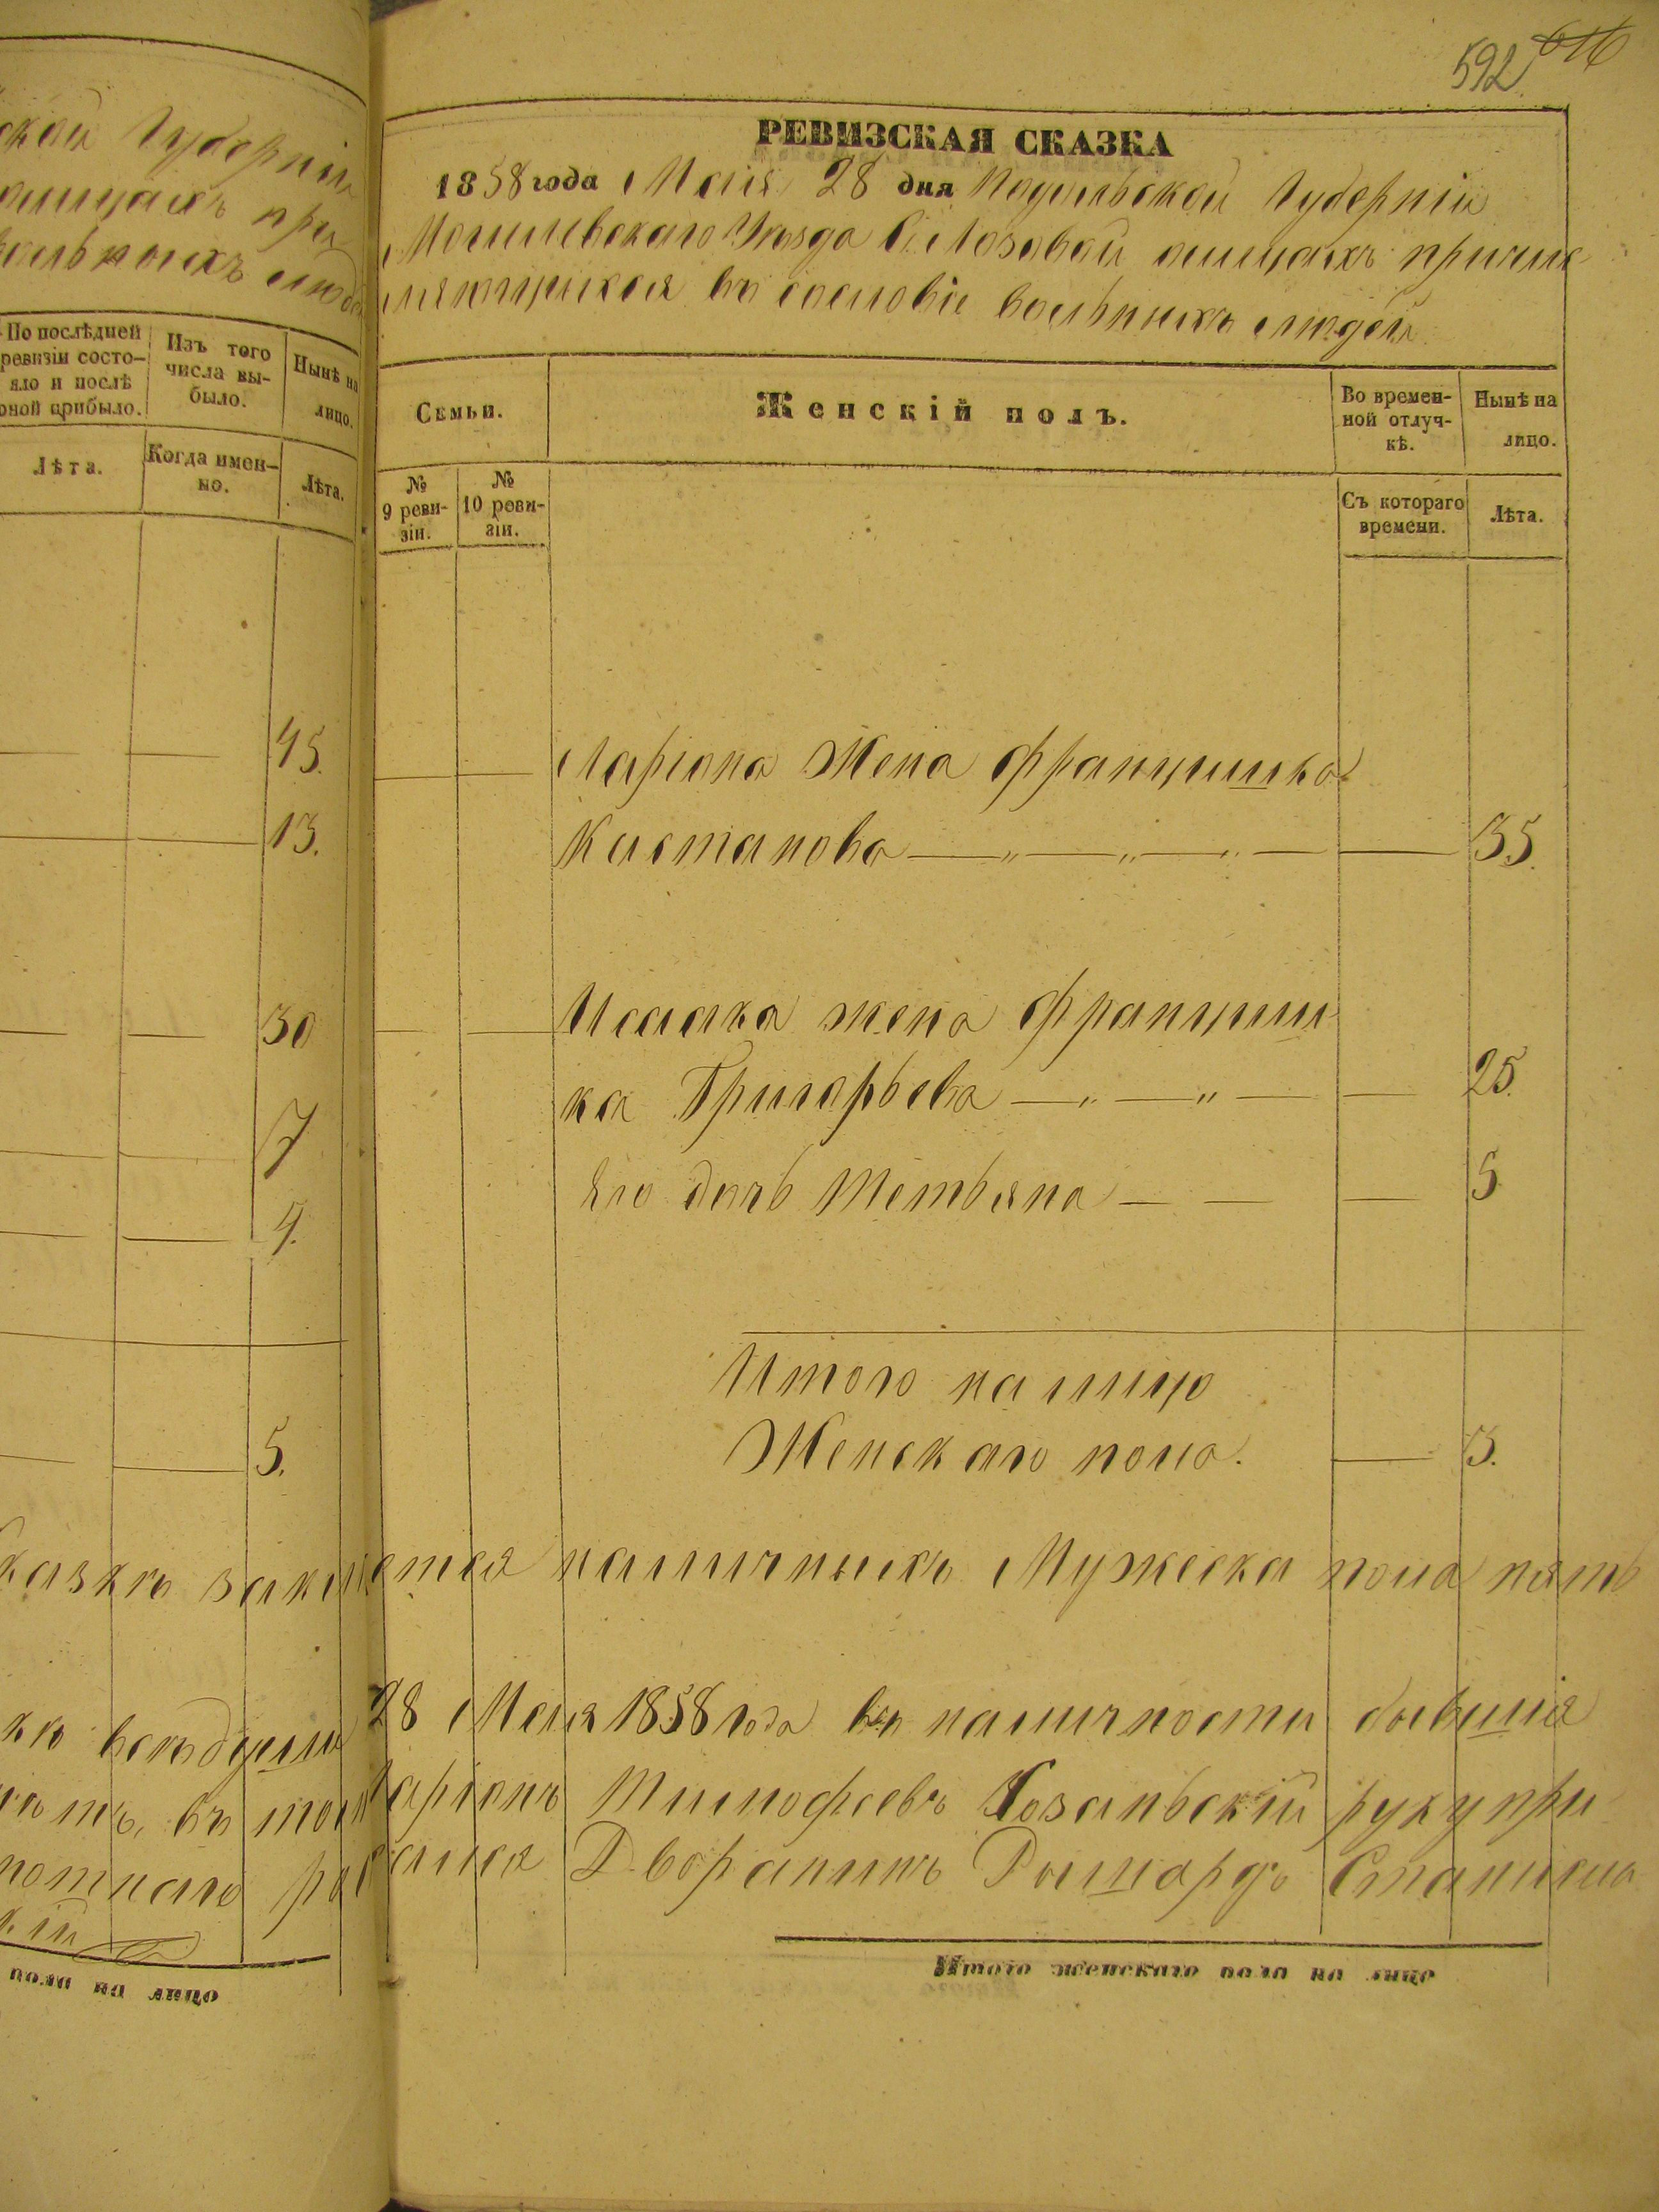 ской Губерніи
олицахъ при
вольныхъ людей
По послѣдней ревизіи состо-
яло и послѣ
оной прибыло.
Изъ того числа вы-
было.
Нынѣ на лицо.
Лѣта.
Когда имен-
но.
Лѣта.
45.
13.
30
7
4.
5.
пола на лицо
592 616
РЕВИЗСКАЯ СКАЗКА
1858 года Маія 28 дня Подольской Губерніи
Могилевскаго Уѣзда С. Лозовой о лицахъ причис
ляющихся въ сословіе вольныхъ людей
Семьи.
Женскій полъ.
Во времен-
ной отлуч-
кѣ.
Нынѣ на
лицо.
№
9 реви-
зіи.
№
10 реви-
зіи.
Съ котораго
времени.
Лѣта.
Ларіона Жена Францишка
Кастанова — „ — „ — „ — — 35.
Исаака жена Францишь
ка Григорьева — „ — „ — — 25.
Его дочь Тетьяна — — — 5.
Итого на лицо
Женскаго пола. — 3.
казкѣ заключается наличныхъ Мужеска пола пять
28 Маія 1858 года въ наличности бывшія
Ларіонъ Тимофеевъ Козаньскій руку при
Дворанинъ Рышардъ Станисла
Итого женскаго пола на лицо